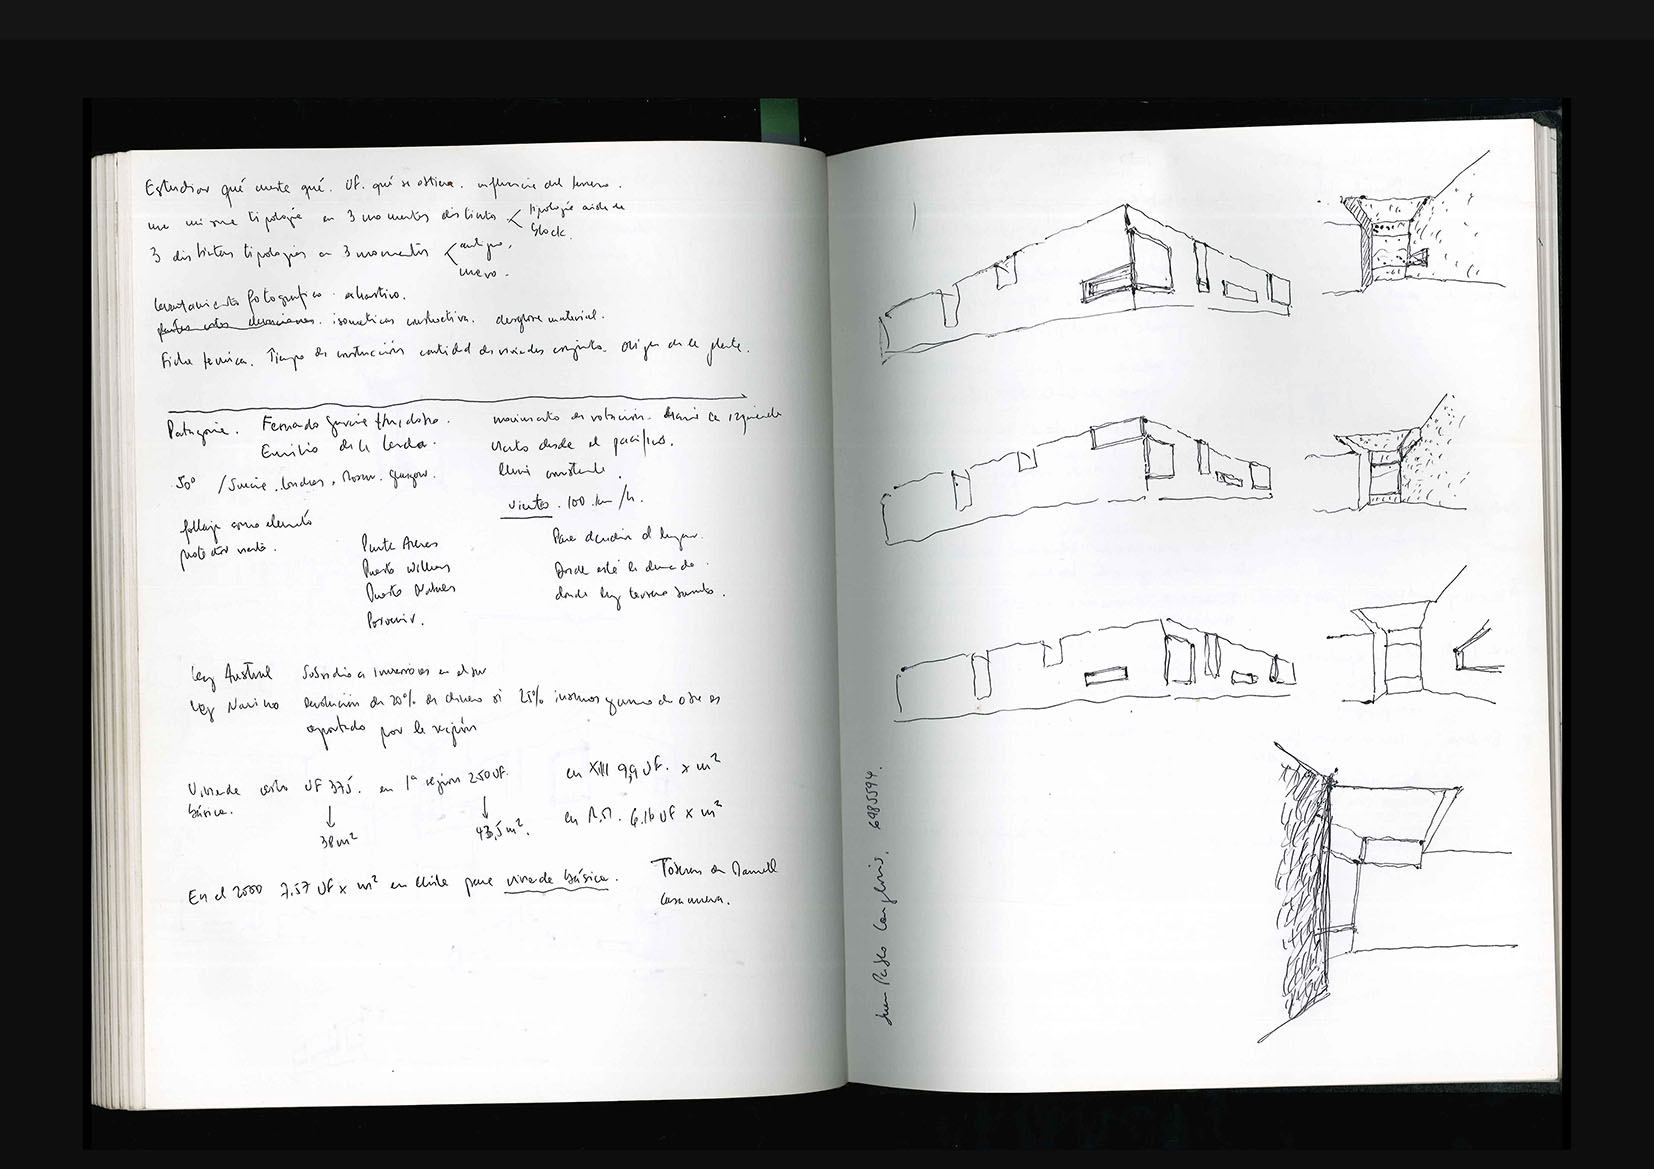 Estudiar qué cuesta qué. UF. qué se obtiene. influencia del terreno.
una misma tipología en 3 momentos distintos < tipología aislada
block.
3 distintas tipologías en 3 momentos < antiguo.
nuevo.
levantamiento fotográfico exhaustivo.
isométricas constructiva. desglose material.
Ficha técnica. Tiempo de construcción cantidad de viviendas conjunto. Origen de la planta.
Patagonia. Fernando García
Emilio de la Cerda.
50° / Suecia, Londres, Moscú. Glasgow.
follaje como elemento
protector viento.
movimiento de rotación. izquierda
viento desde el pacífico.
lluvia constante.
vientos. 100 km/h.
Punta Arenas
Puerto Williams
Puerto Natales
Porvenir.
Para decidir el lugar.
Donde esté la demanda.
donde hay terreno
Ley Austral Subsidio a inversiones en el sur
Ley Navarino Devolución de 20% de dinero si 25% insumos y mano de obra es
aportado por la región
Vivienda básica. costo UF 375. en 1ª región 250 UF.
↓ 38 m² ↓ 43,5 m².
en XIII 9,9 UF. x m²
en R.M. 6.16 UF x m²
En el 2000 7,57 UF x m² en Chile para vivienda básica.
casa nueva.
Juan Pablo 6985594.